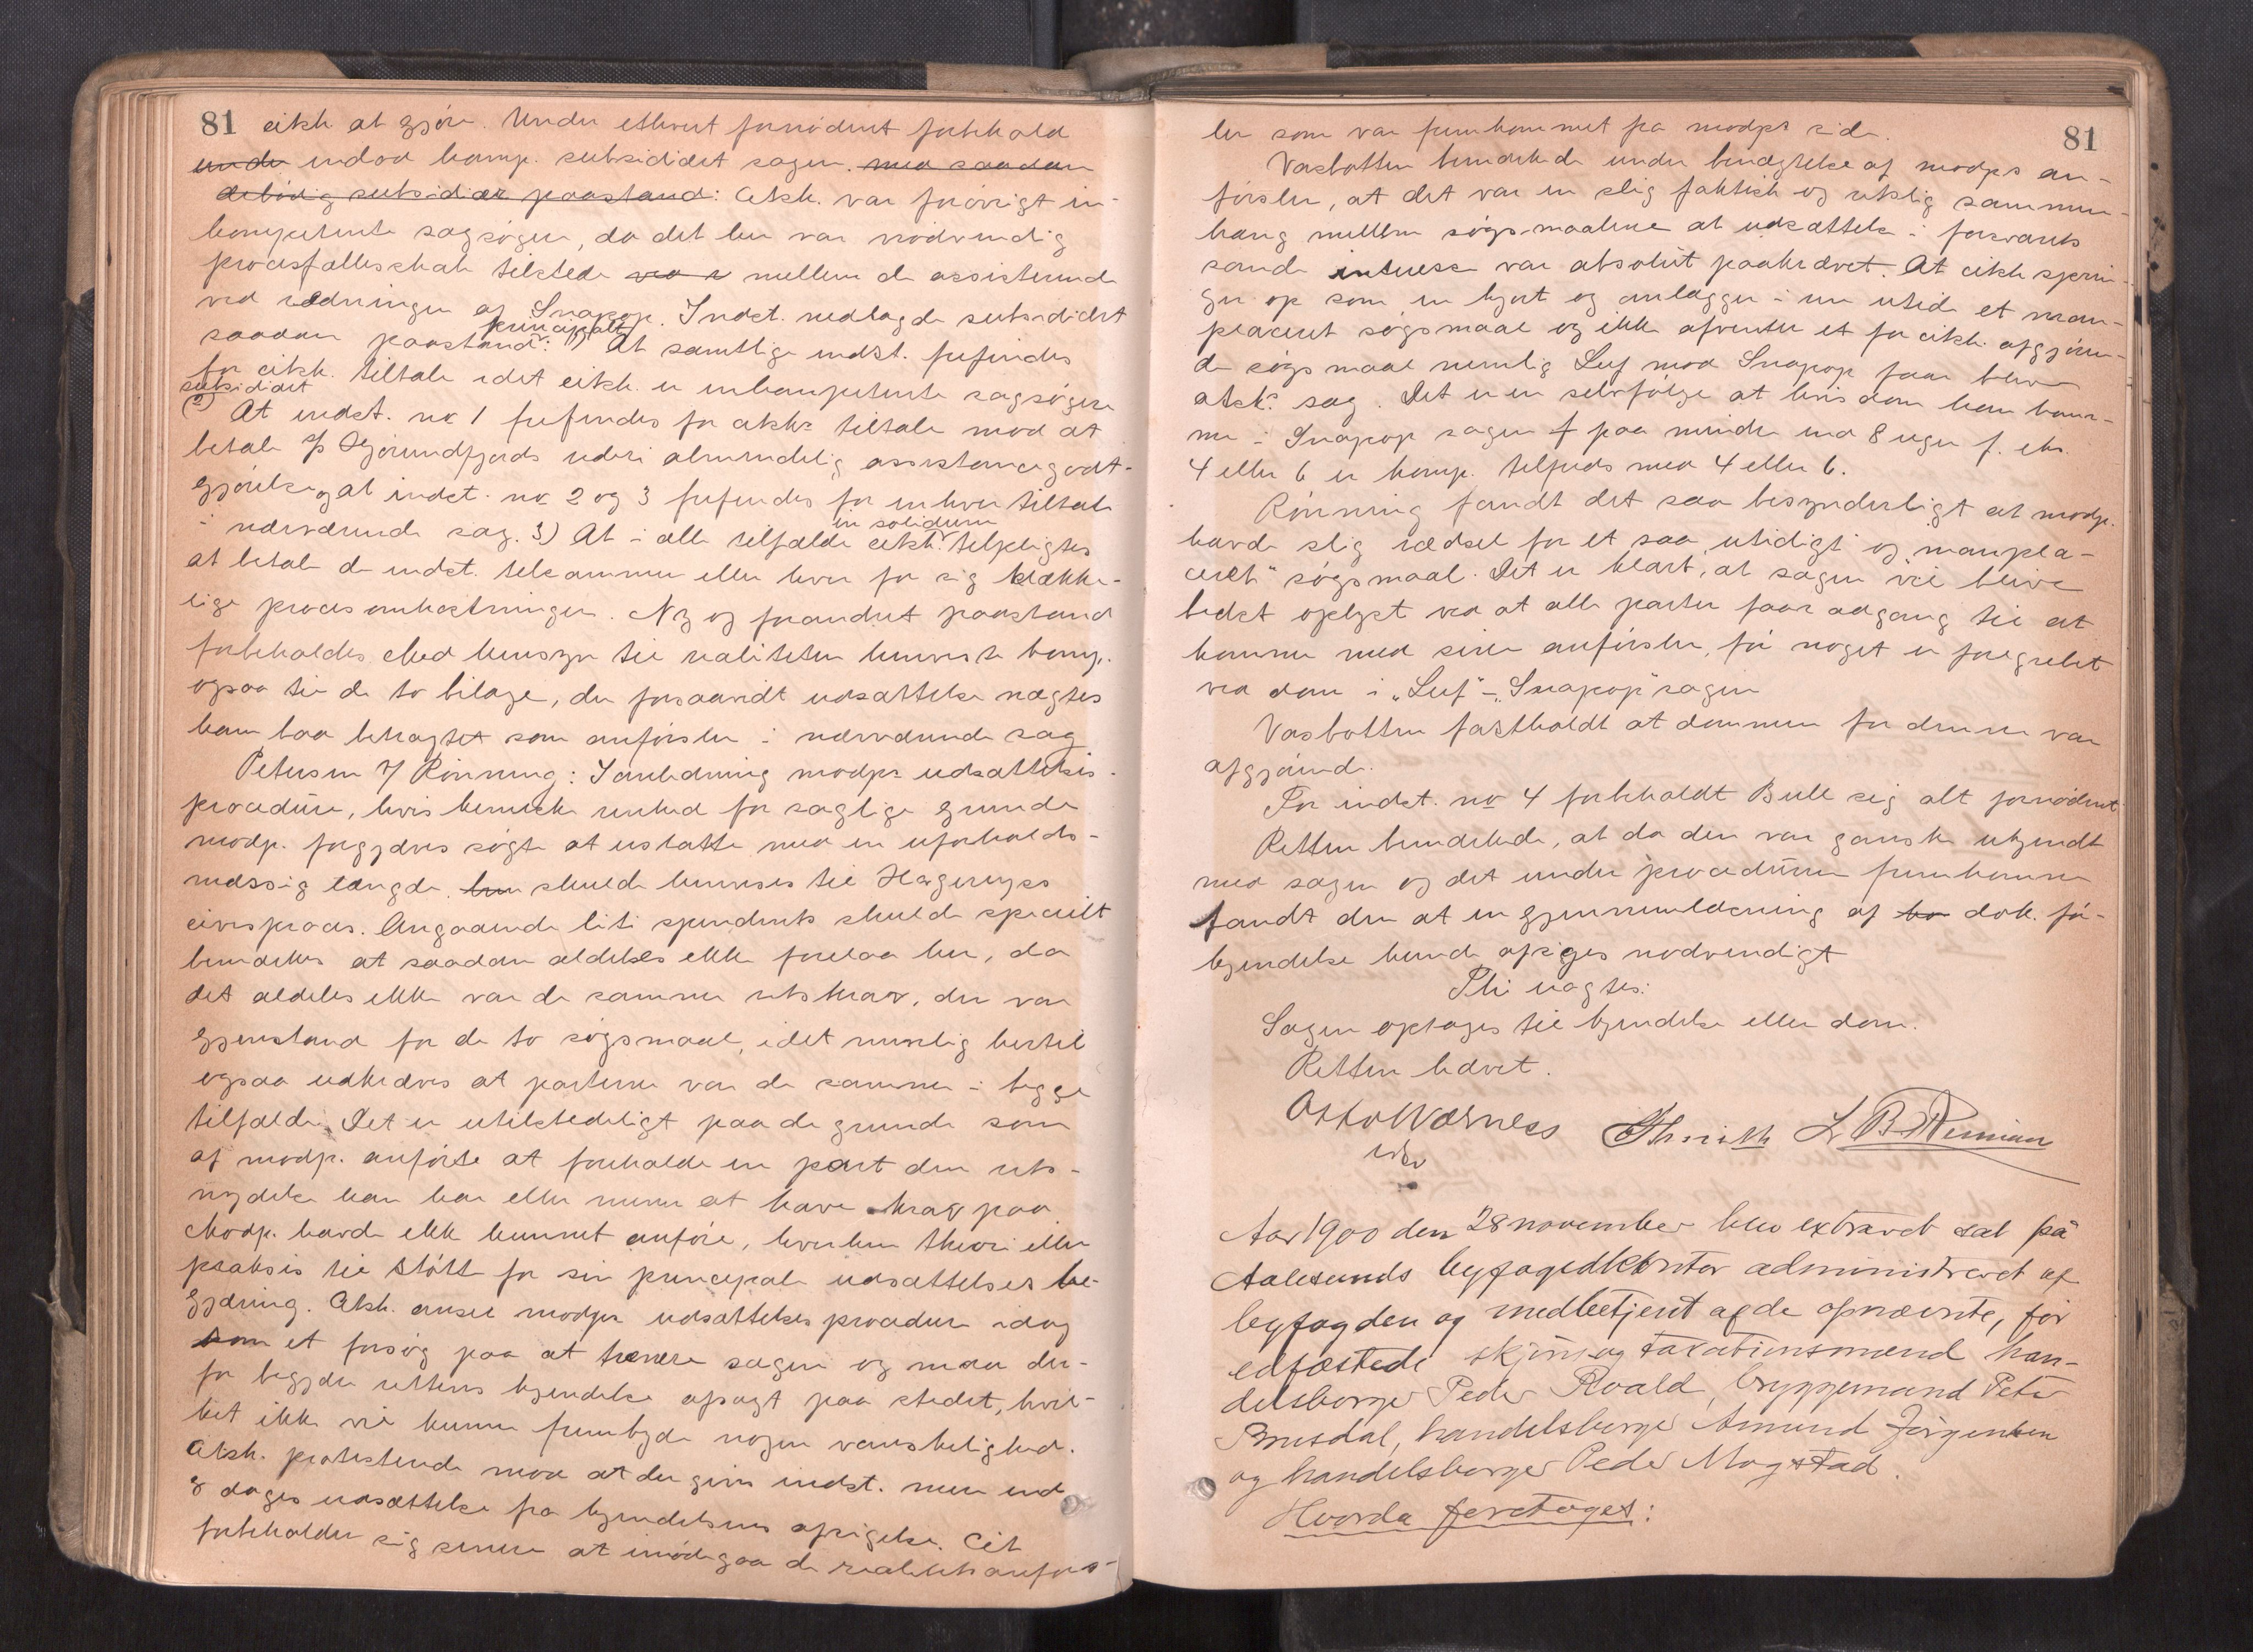 81 citk. at gjøre. Under ethvert fornødent forbehold
under indlod komp. subsidiært sagen. med saadan
debørig subsidiær paastand: Citk. var forøvrigt in-
kompetente sagsøgere, da det her var nødvendig
procesfællesskab tilstede mellem de assisterende
ved redningen af Snapop. Indst. nedlagde subsidiært
saadan paastand: principalt 1) At samtlige indst. frifindes
for citk. tiltale idet citk. er inkompetente sagsøgere
subsidiært
2) At indst. no 1 frifindes for citks tiltale mod at
betale Hjørundfjords rederi almindelig assistancegodt-
gjørelse og at indst. no 2 og 3 frifindes for enhver tiltale
i nærværende sag. 3) At i alle tilfælde citk. in solidum tilpligtes
at betale de indst. tilsammen eller hver for sig klække-
lige procesomkostninger. Ny og forandret paastand
forbeholdes. Med hensyn til realiteten henviste komp.
ogsaa til de to bilage, der forsaavidt udsættelse nægtes
kan bør betragtet som anførsler i nærværende sag
Petersen f/ Rønning: I anledning modps udsættelses-
procedure, hvis knaphed for saglige grunde
modp. forgjæves søgte at erstatte med en uforholds-
mæssig længde skulde henvises til Hagerups
civilproces. Angaaende litispendents skulde specielt
bemærkes at saadan aldeles ikke forelaa her, da
det aldeles ikke var de samme retskrav, der var
gjenstand for de to søgsmaal, idet nemlig hertil
ogsaa udkræves at parterne var de samme i begge
tilfælde. Det er utilstedeligt paa de grunde som
af modp. anførte at forholde en part den rets-
nydelse han har eller mener at have krav paa
Modp. havde ikke kunnet anføre, hverken theori eller
praksis til støtte for sin principale udsættelses be-
gjæring. Citk. anser modps udsættelsesprocedure idag
som et forsøg paa at trenere sagen og maa der-
for begjære rettens kjendelse afsagt paa stedet, hvil-
ket ikke vil kunne frembyde nogen vanskelighed.
Citk. protesterede mod at der gives indst. mere end
8 dages udsættelse fra kjendelsens afsigelse. Cit
forbeholder sig senere at imødegaa de realitetsanførs-
81
ler som var fremkommet fra modps side.
Vasbotten bemærkede under benægtelse af modps an-
førsler, at det var en slig faktisk og retslig sammen-
hæng mellem søgsmaalene at udsættelse i forsvarets
sande interesse var absolut paakrævet. At citk spring-
ger op som en hjort og anlægger i en utide et man-
placeret søgsmaal og ikke afventer et for citk. afgjøren-
de søgsmaal nemlig Leif mod Snapop faar blive
citks sag. Det er en selvfølge at hvis dom kan kom-
me i Snapop sagen f paa mindre end 8 uger f. eks.
4 eller 6 er komp. tilfreds med 4 eller 6.
Rønning fandt det saa besynderligt at modp.
havde slig rædsel for et saa „utidigt og manpla-
ceret“ søgsmaal. Det er klart, at sagen vil blive
bedst oplyst ved at alle parter faar adgang til at
komme med sine anførsler, før noget er foregrebet
ved dom i „Leif“ – „Snapop“ sagen
Vasbotten fastholdt at dommen for denne var
afgjørende.
For indst. no 4 forbeholdt Bull sig alt fornødent
Retten bemærkede, at da den var ganske ukjendt
med sagen og det under proceduren fremkomne
fandt den at en gjennemlæsning af dok. før
kjendelse kunde afsiges nødvendigt
Thi vagtes:
Sagen optages til kjendelse eller dom.
Retten hævet.
Otto Wærness
Aar 1900 den 28 november blev extraret sat på
Aalesunds byfogedkontor administreret af
byfogden og medbetjent af de opnævnte, før
edfæstede skjøns og taxationsmænd han-
delsborger Peder Roald, bryggemand Peter
Brusdal, handelsborger Amund Jørgensen
og handelsborger Peder Mogstad.
Hvorda foretoges: